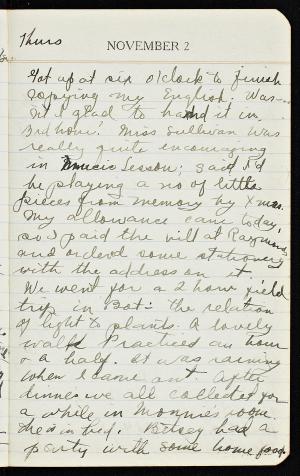 Thurs
NOVEMBER 2
Got up at six o'clock to finish
copying my English. Was-
n't I glad to hand it in
3rd hour! Miss Sullivan was
really quite encouraging
in music lesson; said I'd
be playing a no of little
pieces from memory by Xmas.
My allowance came today,
so I paid the bill at Raymonds
and ordered some stationery
with the address on it.
We went for a 2 hour field
trip in Bot: the relation
of light to plants. A lovely
walk. Practiced an hour
+ a half. It was raining
when I came out. After
dinner we all collected for
a while in Monnie's room.
She's in bed. Betsey had a
party with some home food.